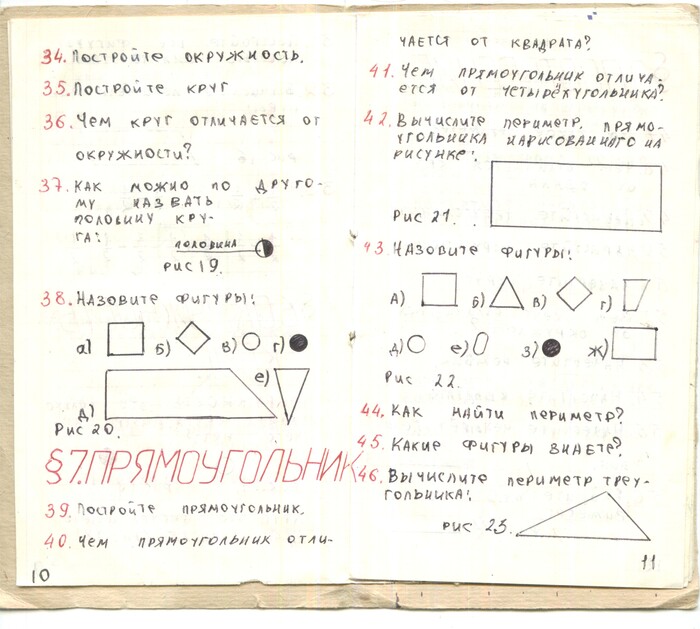 34. Постройте окружность.
35. Постройте круг
36. Чем круг отличается от
окружности?
37. Как можно по друго-
му назвать
половину кру-
га:
половина
рис 19.
38. Назовите фигуры:
а)
б)
в)
г)
д)
е)
Рис 20.
§7. ПРЯМОУГОЛЬНИК
39. Постройте прямоугольник.
40. Чем прямоугольник отли-
10
чается от квадрата?
41. Чем прямоугольник отлича-
ется от четырёхугольника?
42. Вычислите периметр прямо-
угольника нарисованнго на
рисунке:
Рис 21.
43. Назовите фигуры:
А)
Б)
В)
г)
д)
е)
З)
Ж)
Рис 22.
44. Как найти периметр?
45. Какие фигуры знаете?
46. Вычислите периметр треу-
гольника:
рис 23.
11